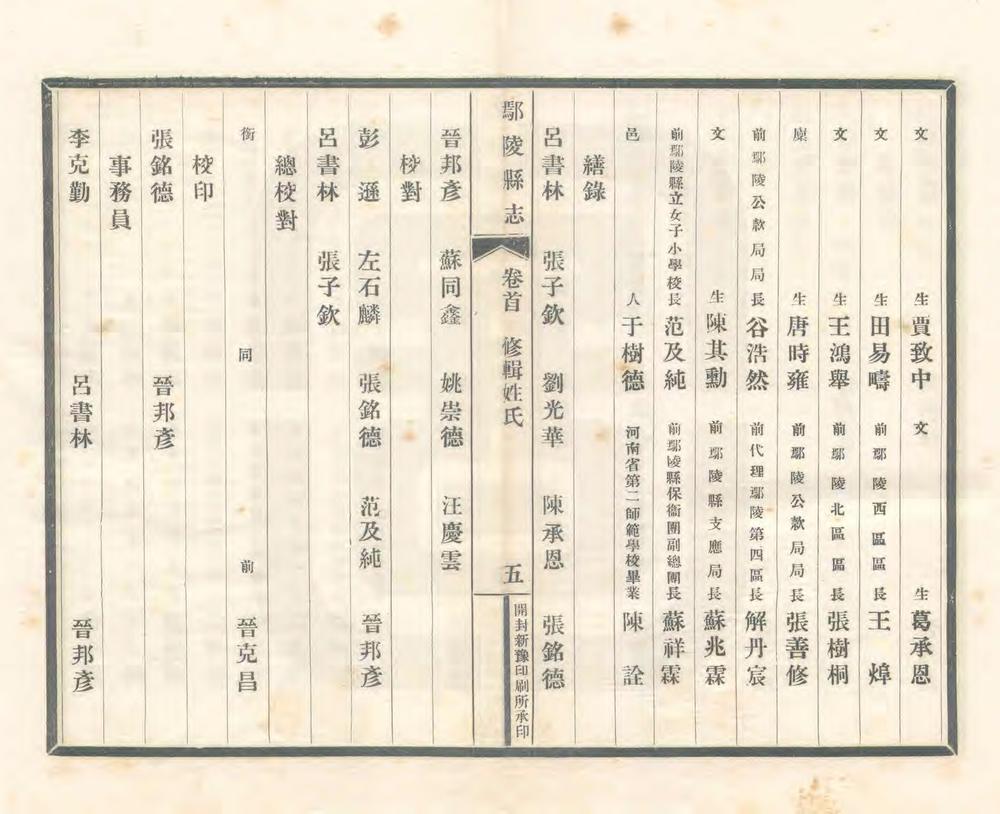 文生賈致中 文生葛承恩
文生田易疇 前鄢陵西區區長王煒
文生王鴻舉 前鄢陵北區區長張樹桐
廩生唐時雍 前鄢陵公款局局長張善修
前鄢陵公款局局長谷浩然 前代理鄢陵第四區長解丹宸
文生陳其勳 前鄢陵縣支應局長蘇兆霖
前鄢陵縣立女子小學校長范及純 前鄢陵縣保衞團副總團長蘇祥霖
邑人于樹德 河南省第二師範學校畢業陳詮
繕錄
呂書林 張子欽 劉光華 陳承恩 張銘德
鄢陵縣志 卷首 修輯姓氏 五 開封新豫印刷所承印
晉邦彥 蘇同鑫 姚崇德 汪慶雲
校對
彭遜 左石麟 張銘德 范及純 晉邦彥
呂書林 張子欽
總校對
銜同前晉克昌
校印
張銘德 晉邦彥
事務員
李克勤 呂書林 晉邦彥